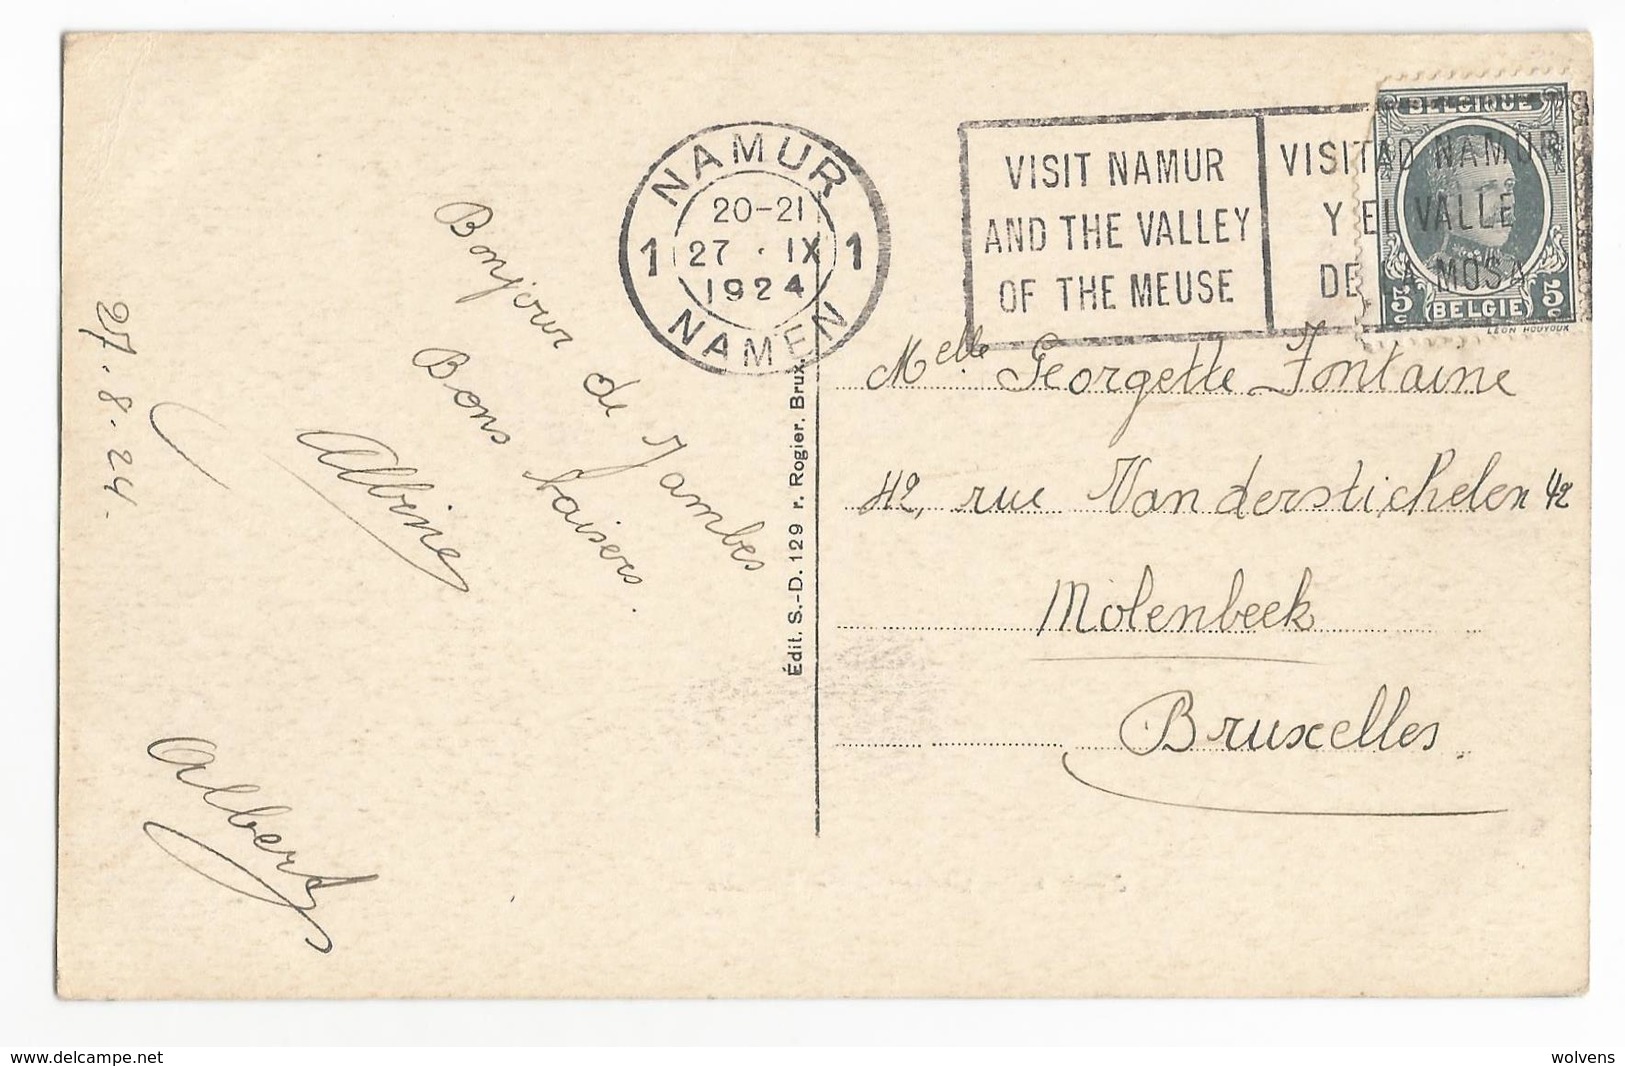 NAMUR
20-21
1 27 . IX 1
1924
NAMEN
VISIT NAMUR
AND THE VALLEY
OF THE MEUSE
VISITAD NAMUR
Y EL VALLE
DE LA MOSA
BELGIQUE
5c 5c
BELGIE
LEON HOUYOUX
27.8.24.
Bonjour de Jambes
Bons baisers.
Albine
Albert
Édit. S.-D. 129 r. Rogier. Brux.
Melle Georgette Fontaine
42, rue Vanderstichelen 42
Molenbeek
Bruxelles.
www.delcampe.net
wolvens